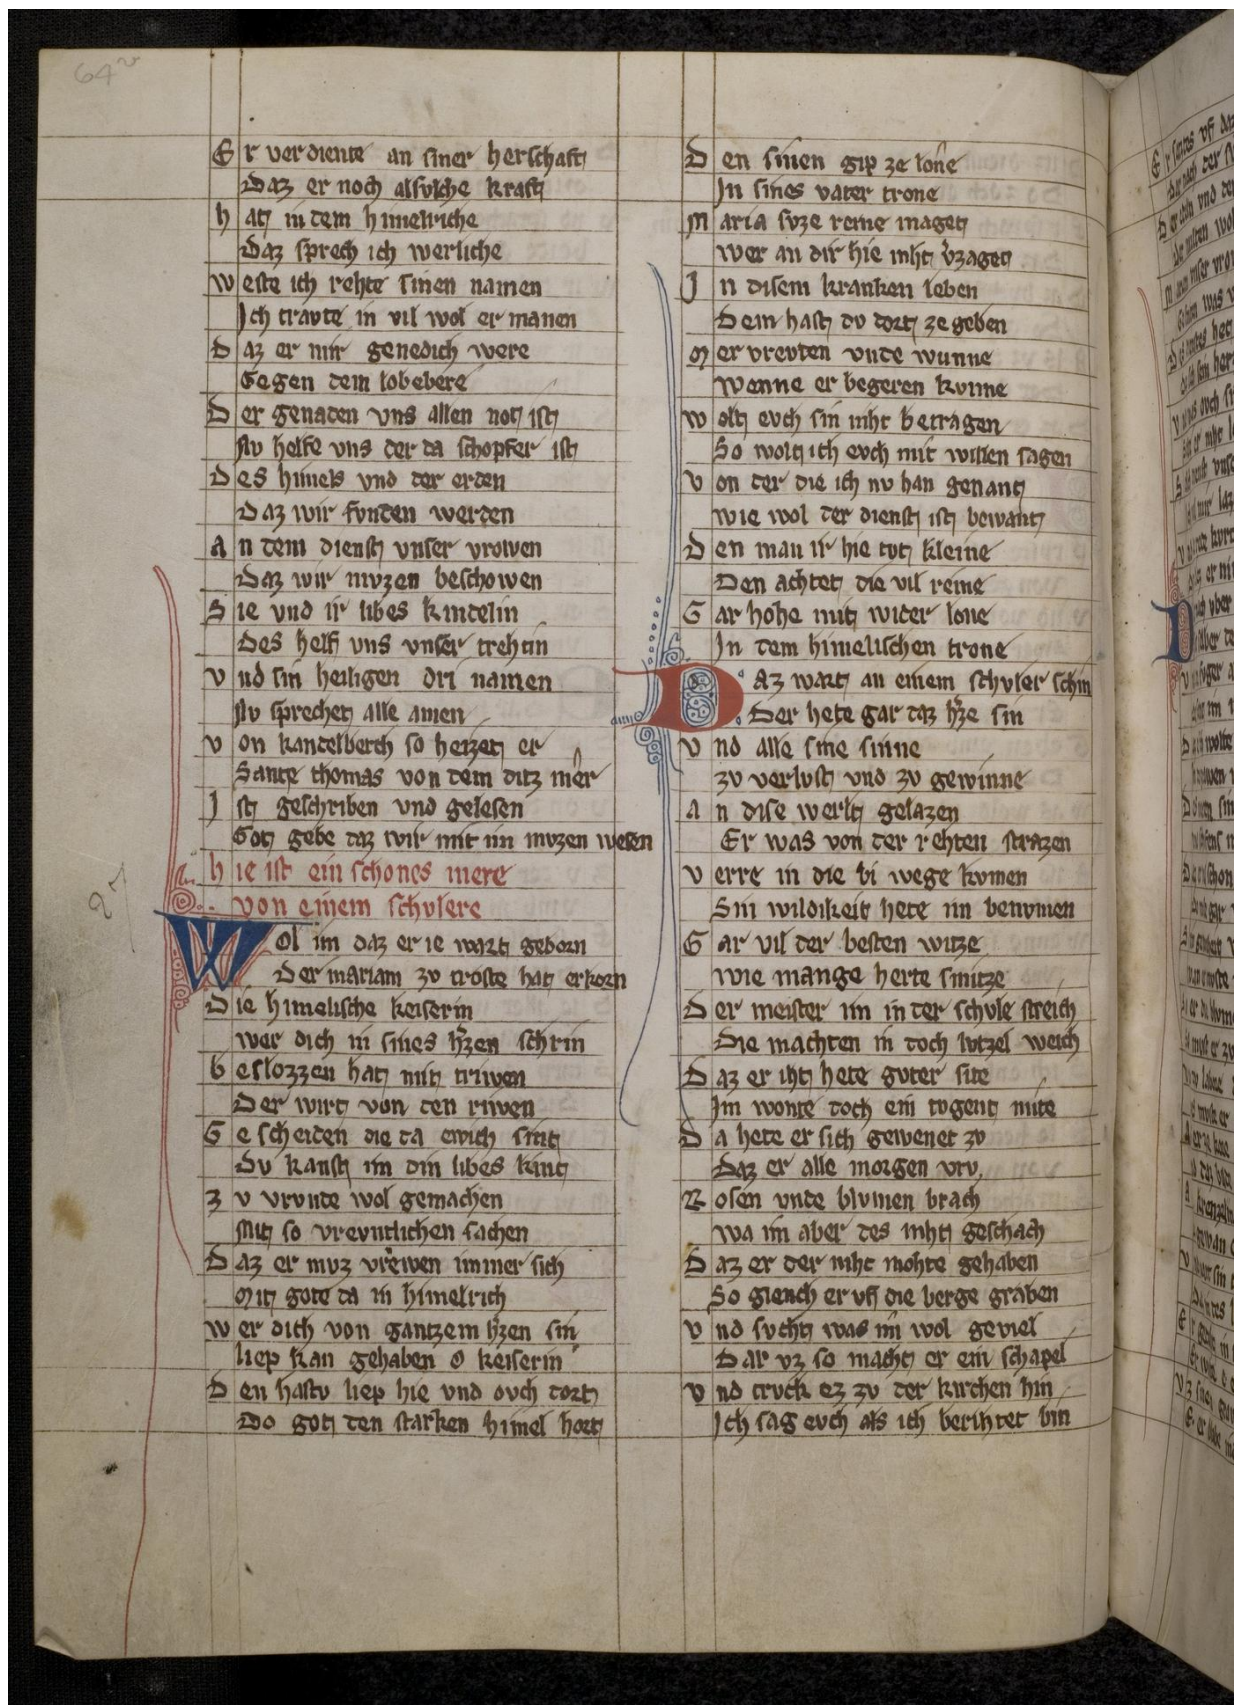 64v
Er verdiente an siner herschaft
Daz er noch alsulche kraft
hat in dem himelriche
Daz sprech ich werliche
weste ich rehte sinen namen
Ich travte in vil wol er manen
Daz er mir genedich were
Gegen dem lobebere
Der genaden vns allen not ist
Nv helfe vns der da schopfer ist
Des himels vnd der erden
Daz wir funden werden
An dem dienst vnser vrowen
Daz wir mvzen beschowen
Sie vnd ir libes kindelin
Des helf vns vnser trehtin
vnd sin heiligen dri namen
Nv sprechet alle amen
von kandelberch so heizet er
Sante thomas von dem ditz mêr
Ist geschriben vnd gelesen
Got gebe daz wir mit im mvzen wesen
hie ist ein schones mere
von einem schvlere
27
Wol im daz er ie wart geborn
Der mariam zv troste hat erkorn
Die himelische keiserin
wer dich in sines hˀzen schrin
beslozzen hat mit triwen
Der wirt von den riwen
Gescheiden die da ewich sint
Dv kanst im din libes kint
zv vrvnde wol gemachen
Mit so vrevntlichen sachen
Daz er mvz vrewen immer sich
Mit gote da in himelrich
wer dich von gantzem hˀzen sin
liep kan gehaben o keiserin
Den hastv liep hie vnd ovch dort
Do got den starken himel hort
Den sinen gip ze lone
In sines vater trone
Maria svze reine maget
wer an dir hie niht vˀzaget
In disem kranken leben
Dem hast dv dort ze geben
Mer vrevden vnde wunne
wenne er begeren kvnne
wolt evch sin niht betragen
So wolt ich evch mit willen sagen
von der die ich nv han genant
wie wol der dienst ist bewant
Den man ir hie tvt kleine
Den achtet die vil reine
Gar hohe mit wider lone
In dem himelischen trone
Daz wart an einem schvler schin
Der hete gar daz hˀze sin
vnd alle sine sinne
zv verlvst vnd zv gewinne
An dise werlt gelazen
Er was von der rehten strazen
verre in die bi wege kvmen
Sin wildikeit hete im benvmen
Gar vil der besten witze
wie mange herte smitze
Der meister im in der schvle streich
Die machten in doch lvtzel weich
Daz er iht hete gvter site
Im wonte doch ein tvgent mite
Da hete er sich gewenet zv
Daz er alle morgen vrv
Rosen vnde blvmen brach
wa im aber des niht geschach
Daz er der niht mohte gehaben
So giench er vff die berge graben
vnd svcht was im wol geviel
Dar vz so macht er ein schapel
vnd trvck ez zv der kirchen hin
Ich sag evch als ich berihtet bin